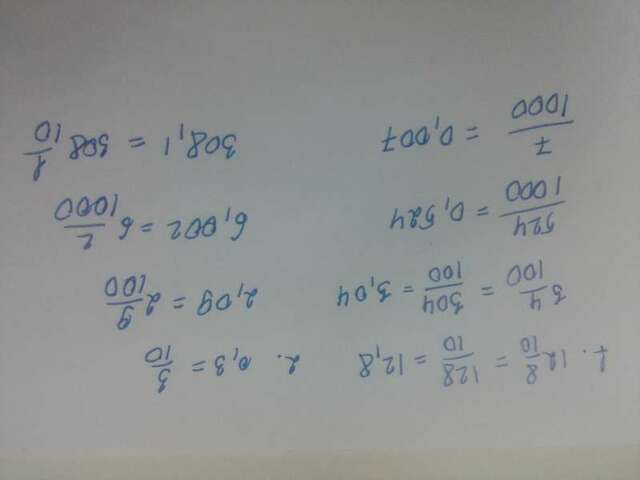 1. 12 8/10 = 128/10 = 12,8
3 4/100 = 304/100 = 3,04
524/1000 = 0,524
7/1000 = 0,007
2. 0,3 = 3/10
2,09 = 2 9/100
6,002 = 6 2/1000
308,1 = 308 1/10